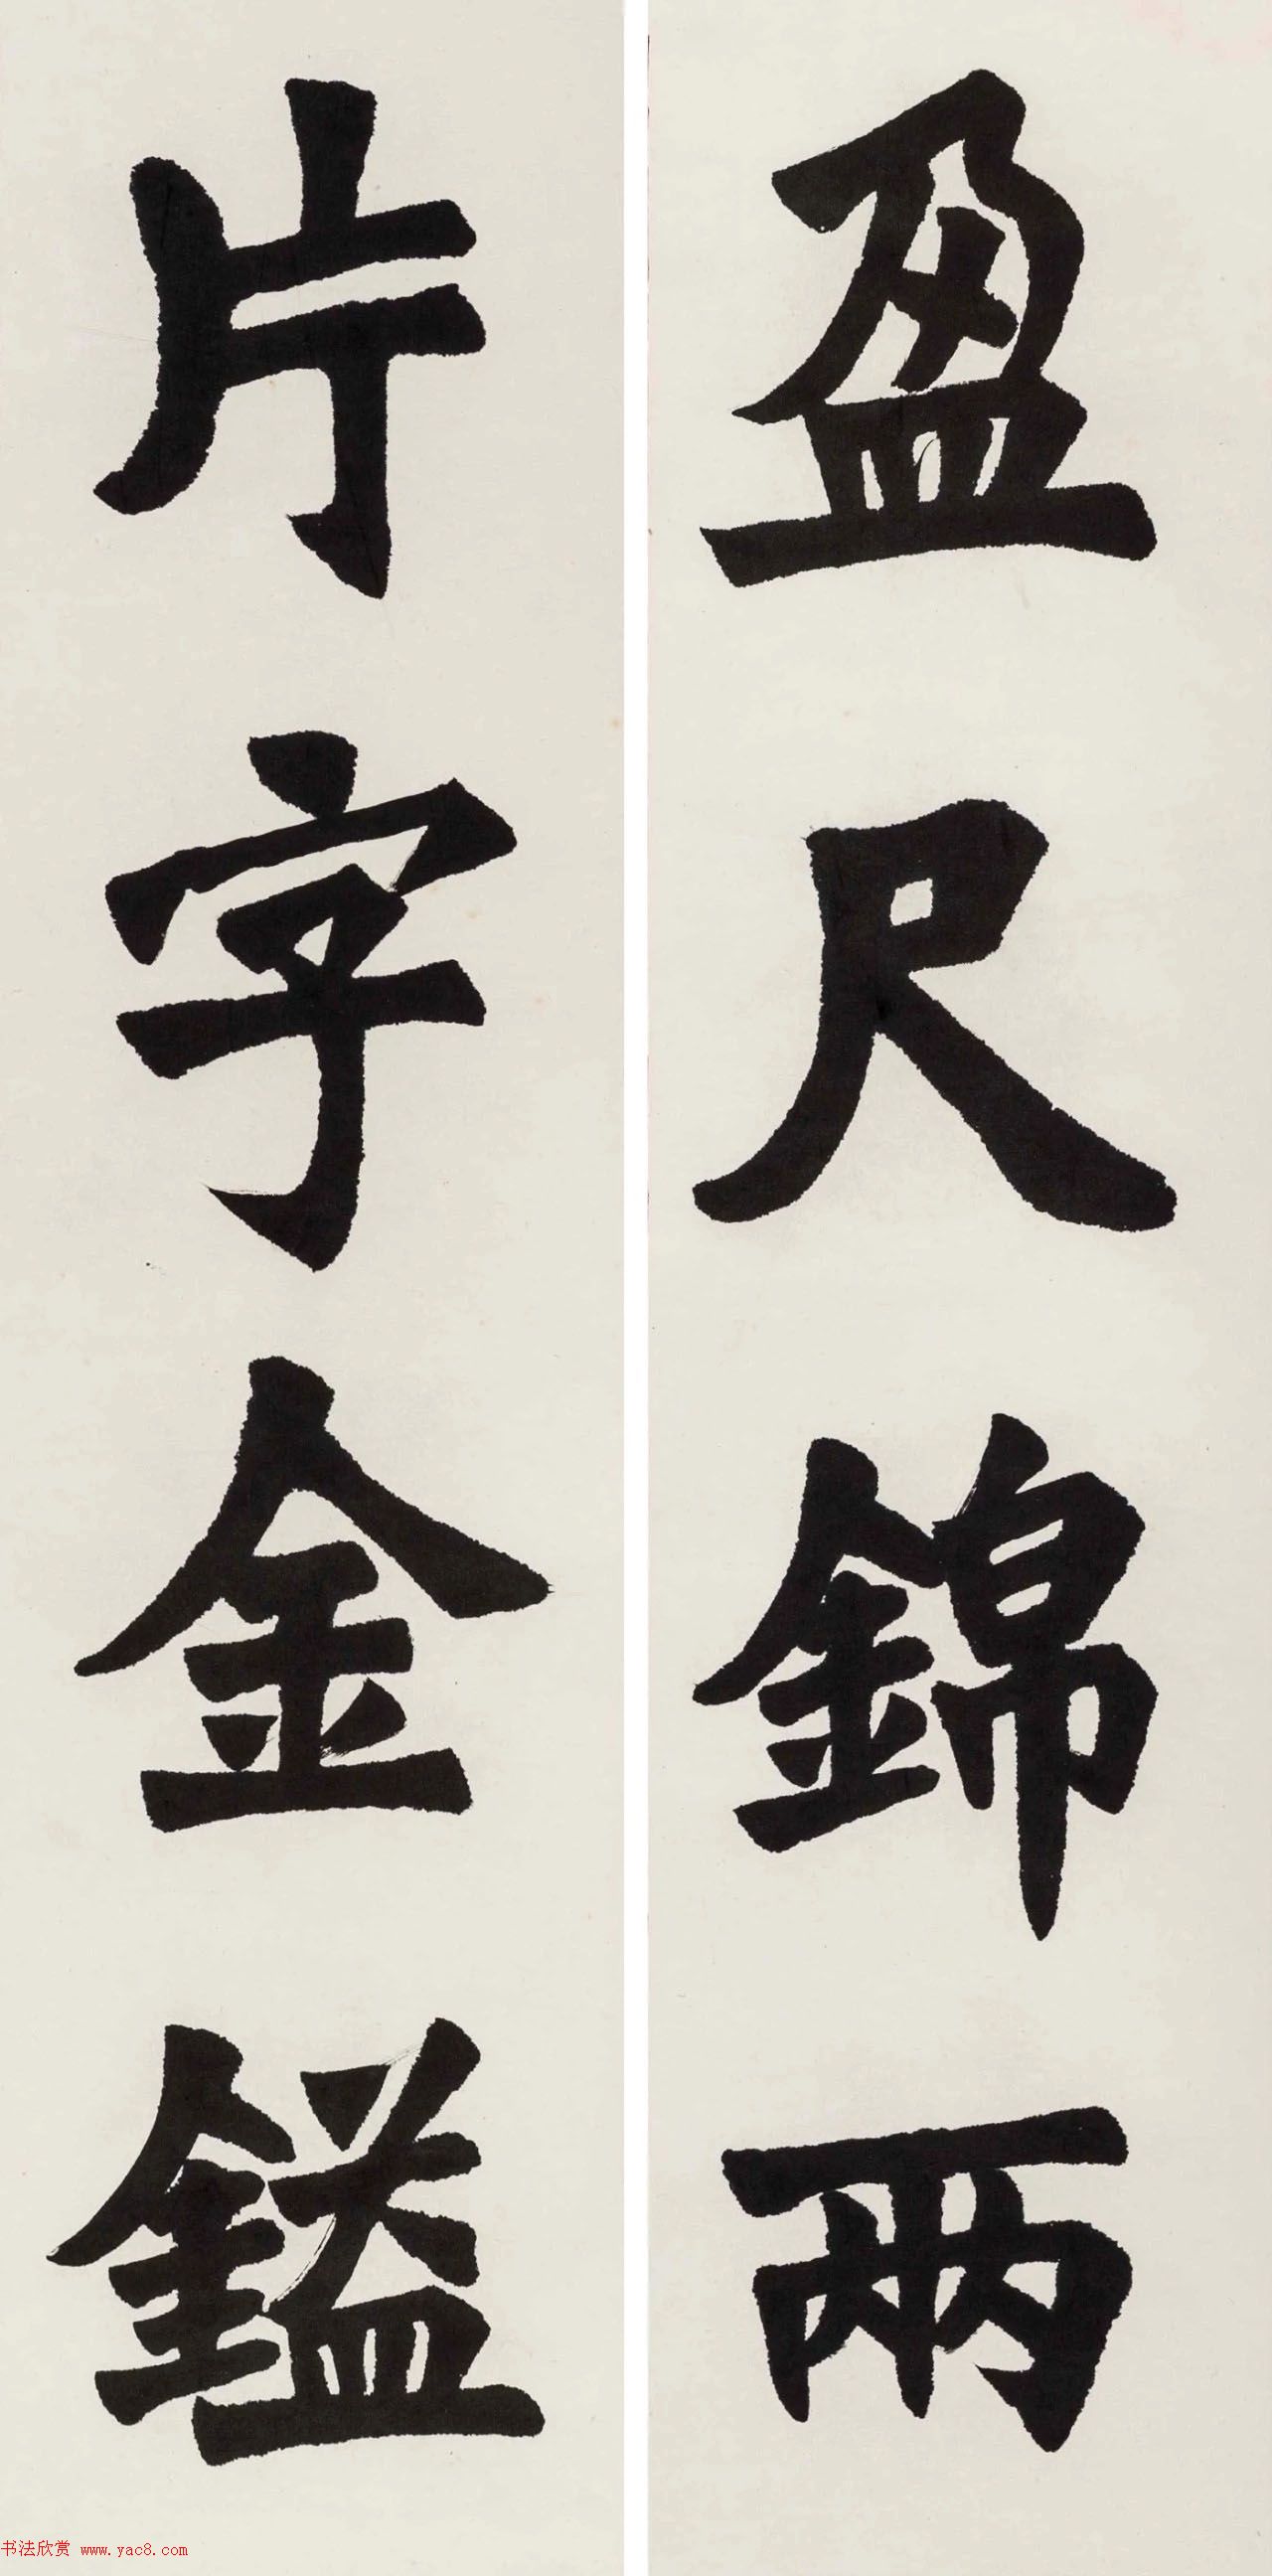 盈尺錦兩
片字金鎰
书法欣赏 www.yac8.com